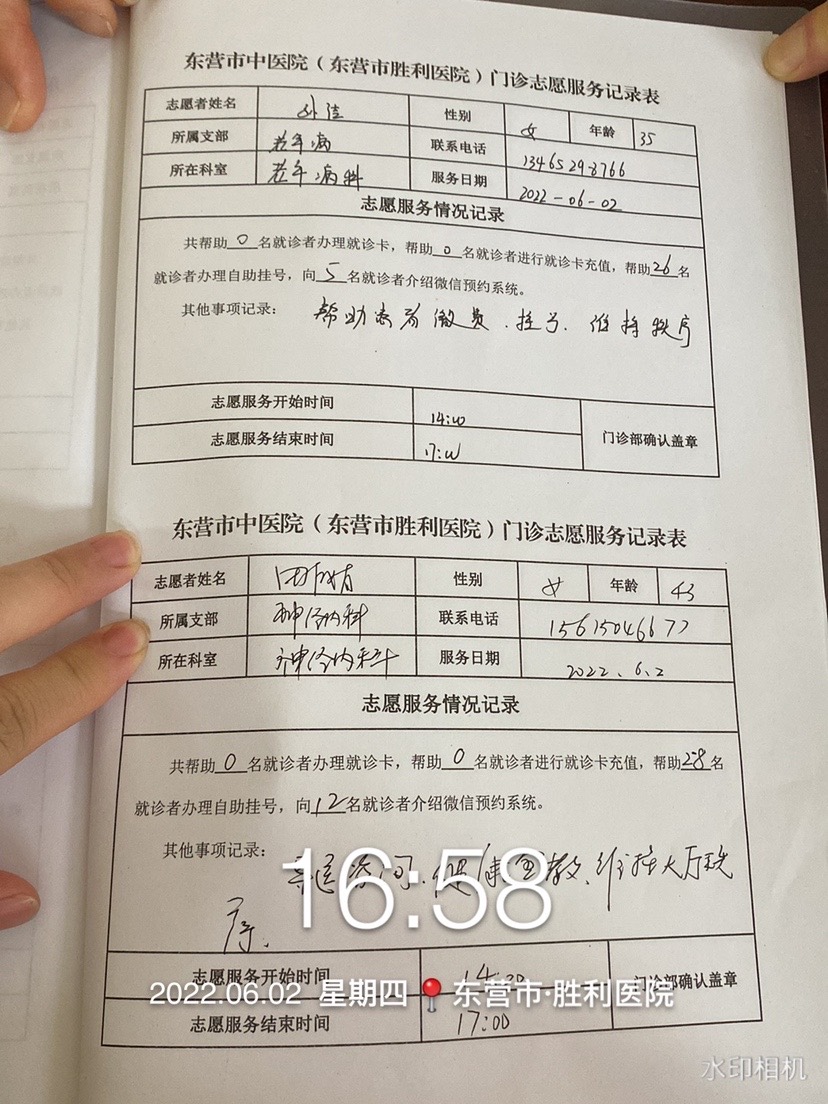 东营市中医院（东营市胜利医院）门诊志愿服务记录表
志愿者姓名 性别 女 年龄 35
所属支部 老年病 联系电话 13465298766
所在科室 老年病科 服务日期 2022-06-02
志愿服务情况记录
共帮助0名就诊者办理就诊卡，帮助0名就诊者进行就诊卡充值，帮助26名
就诊者办理自助挂号，向5名就诊者介绍微信预约系统。
其他事项记录： 帮助患者缴费、挂号、维持秩序
志愿服务开始时间 14:00
门诊部确认盖章
志愿服务结束时间 17:00
东营市中医院（东营市胜利医院）门诊志愿服务记录表
志愿者姓名 性别 女 年龄 43
所属支部 神经内科 联系电话 15615046677
所在科室 神经内科 服务日期 2022.6.2
志愿服务情况记录
共帮助0名就诊者办理就诊卡，帮助0名就诊者进行就诊卡充值，帮助28名
就诊者办理自助挂号，向12名就诊者介绍微信预约系统。
其他事项记录： 导医咨询、健康宣教、维持大厅秩
序.
16:58
志愿服务开始时间
门诊部确认盖章
2022.06.02 星期四 东营市·胜利医院
志愿服务结束时间 17:00
水印相机